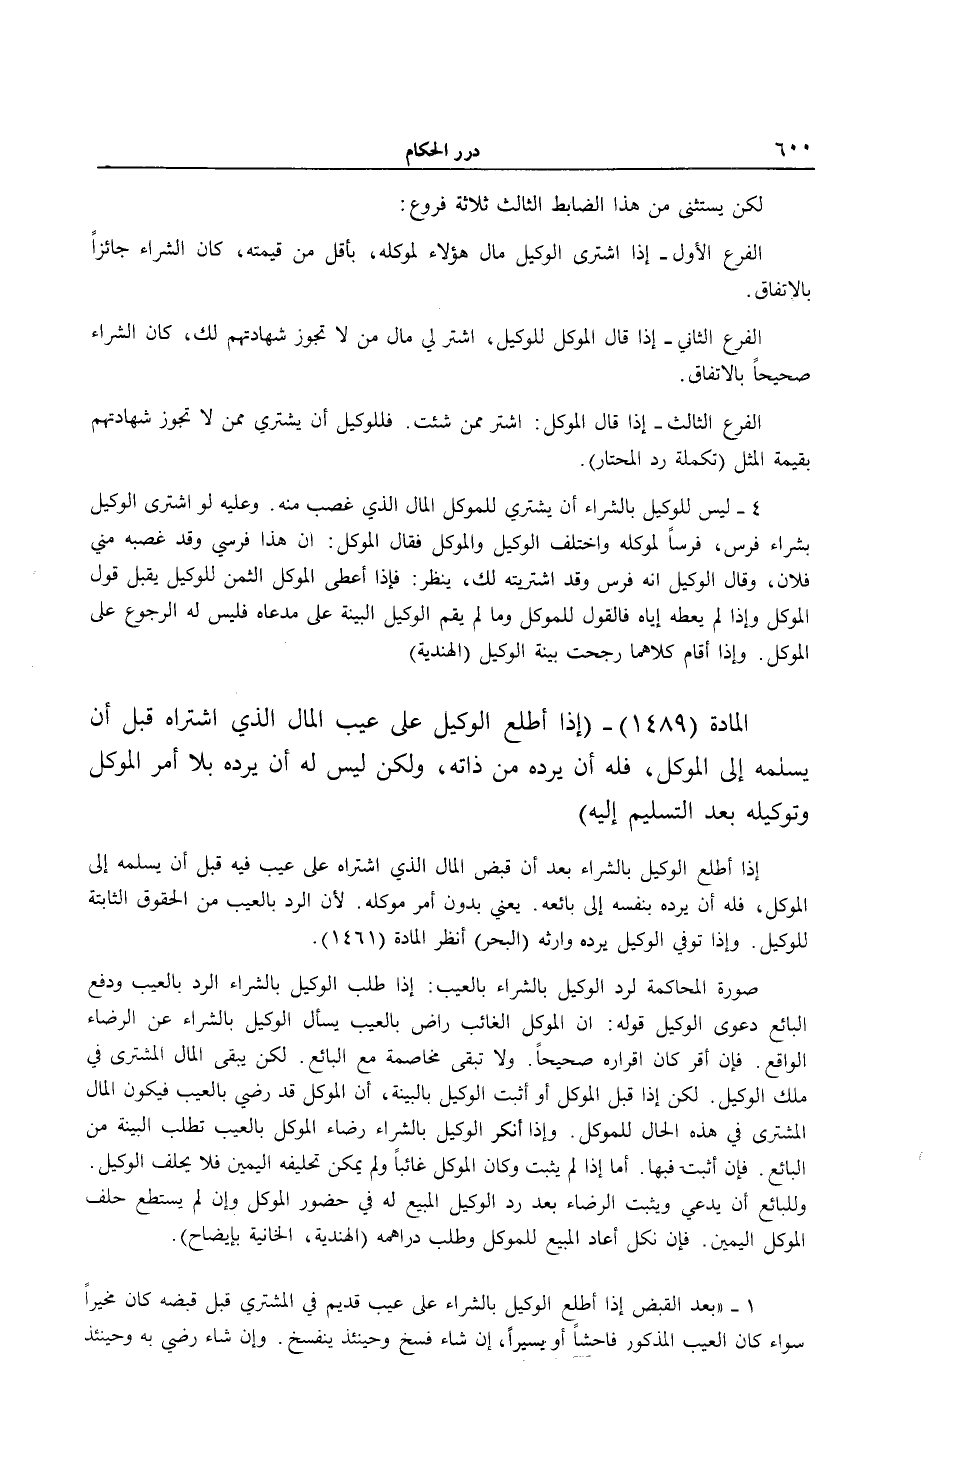 ٦٠٠
درر الحكام
لكن يستثنى من هذا الضابط الثالث ثلاثة فروع:
الفرع الأول ـ إذا اشترى الوكيل مال هؤلاء لموكله، بأقل من قيمته، كان الشراء جائزاً
بالاتفاق.
الفرع الثاني ـ إذا قال الموكل للوكيل، اشتر لي مال من لا تجوز شهادتهم لك، كان الشراء
صحيحاً بالاتفاق.
الفرع الثالث ـ إذا قال الموكل: اشتر ممن شئت. فللوكيل أن يشتري ممن لا تجوز شهادتهم
بقيمة المثل (تكملة رد المحتار).
٤ ـ ليس للوكيل بالشراء أن يشتري للموكل المال الذي غصب منه. وعليه لو اشترى الوكيل
بشراء فرس، فرساً لموكله واختلف الوكيل والموكل فقال الموكل: ان هذا فرسي وقد غصبه مني
فلان، وقال الوكيل انه فرس وقد اشتريته لك، ينظر: فإذا أعطى الموكل الثمن للوكيل يقبل قول
الموكل وإذا لم يعطه إياه فالقول للموكل وما لم يقم الوكيل البينة على مدعاه فليس له الرجوع على
الموكل. وإذا أقام كلاهما رجحت بينة الوكيل (الهندية)
المادة (١٤٨٩) ـ (إذا أطلع الوكيل على عيب المال الذي اشتراه قبل أن
يسلمه إلى الموكل، فله أن يرده من ذاته، ولكن ليس له أن يرده بلا أمر الموكل
وتوكيله بعد التسليم إليه)
إذا أطلع الوكيل بالشراء بعد أن قبض المال الذي اشتراه على عيب فيه قبل أن يسلمه إلى
الموكل، فله أن يرده بنفسه إلى بائعه. يعني بدون أمر موكله. لأن الرد بالعيب من الحقوق الثابتة
للوكيل. وإذا توفي الوكيل يرده وارثه (البحر) أنظر المادة (١٤٦١).
صورة المحاكمة لرد الوكيل بالشراء بالعيب: إذا طلب الوكيل بالشراء الرد بالعيب ودفع
البائع دعوى الوكيل قوله: ان الموكل الغائب راض بالعيب يسأل الوكيل بالشراء عن الرضاء
الواقع. فإن أقر كان اقراره صحيحاً. ولا تبقى مخاصمة مع البائع. لكن يبقى المال المشترى في
ملك الوكيل. لكن إذا قبل الموكل أو أثبت الوكيل بالبينة، أن الموكل قد رضي بالعيب فيكون المال
المشترى في هذه الحال للموكل. وإذا أنكر الوكيل بالشراء رضاء الموكل بالعيب تطلب البينة من
البائع. فإن أثبت فبها. أما إذا لم يثبت وكان الموكل غائباً ولم يمكن تحليفه اليمين فلا يحلف الوكيل.
وللبائع أن يدعي ويثبت الرضاء بعد رد الوكيل المبيع له في حضور الموكل وإن لم يستطع حلف
الموكل اليمين. فإن نكل أعاد المبيع للموكل وطلب دراهمه (الهندية، الخانية بإيضاح).
١ ـ «بعد القبض إذا أطلع الوكيل بالشراء على عيب قديم في المشتري قبل قبضه كان مخيراً
سواء كان العيب المذكور فاحشاً أو يسيراً، إن شاء فسخ وحينئذ ينفسخ. وإن شاء رضي به وحينئذ